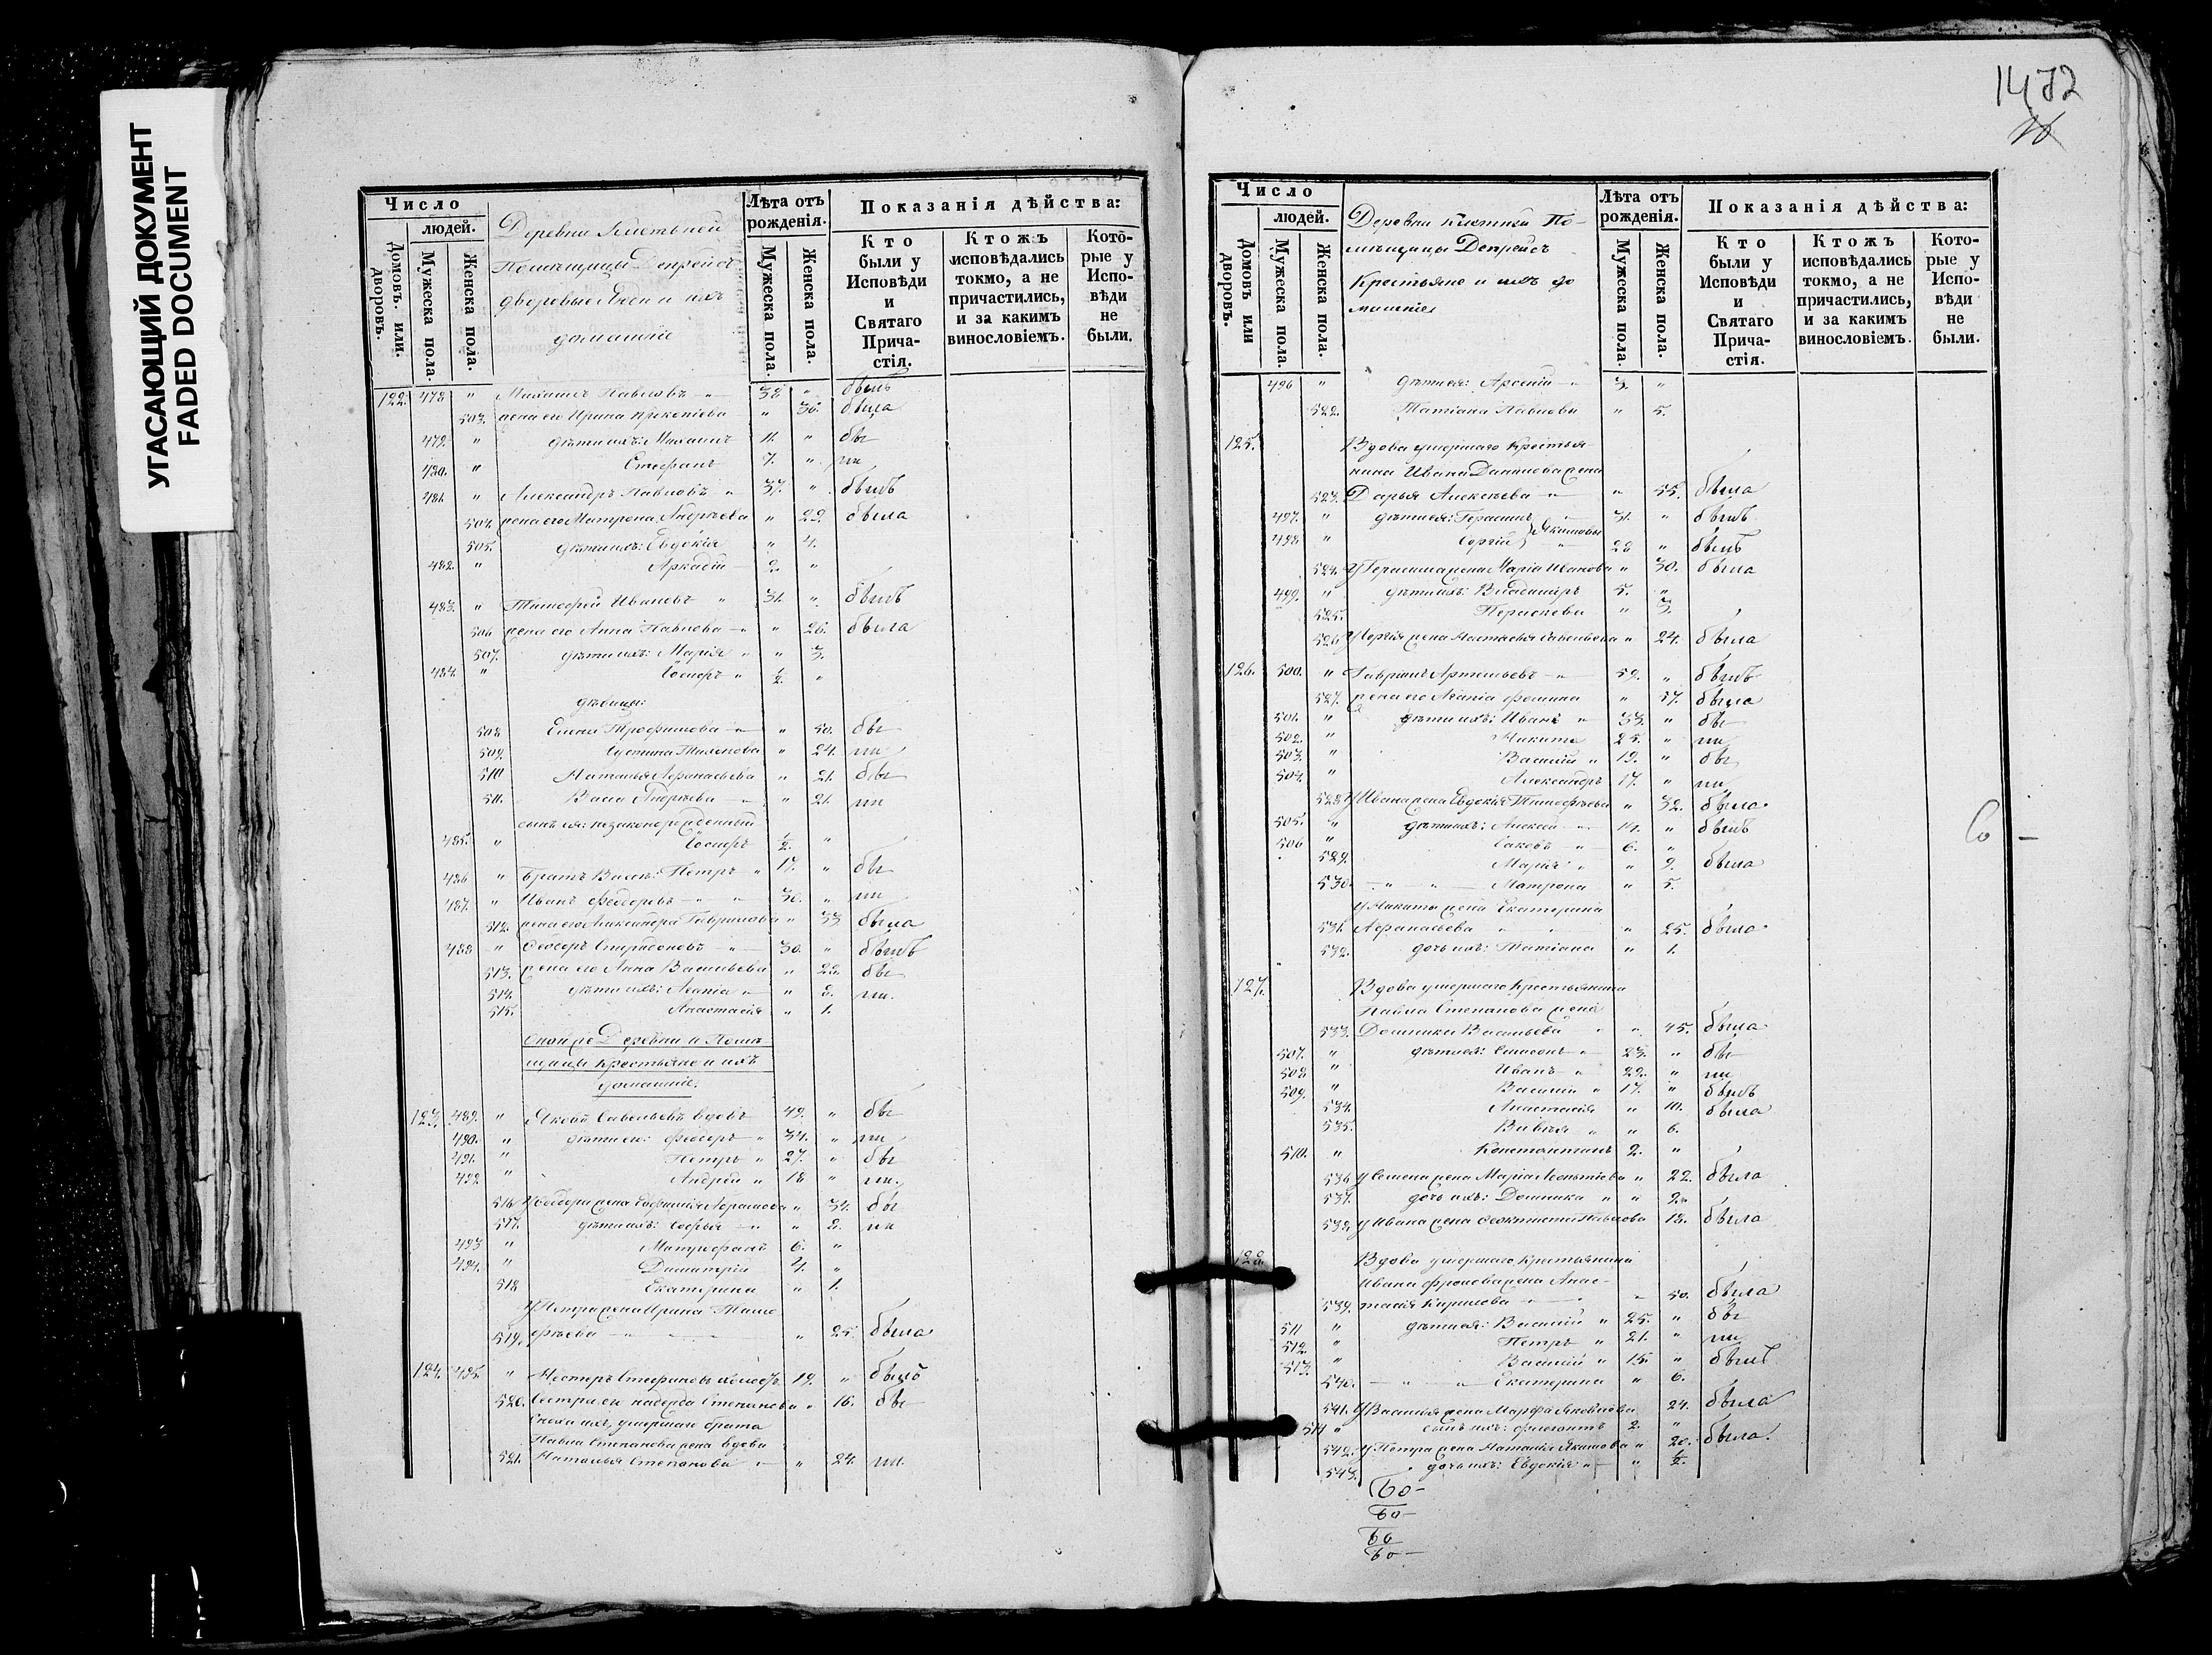 УГАСАЮЩИЙ ДОКУМЕНТ
FADED DOCUMENT
Число
людей.
Домовъ или дворовъ.
Мужеска пола.
Женска пола.
Деревни
Помѣщицы Депрейсъ
дворовые люди и ихъ
домашніе
Лѣта отъ рожденія.
Мужеска пола.
Женска пола.
Показанія дѣйства:
Кто были у Исповѣди и Святаго Причастія.
Ктожъ исповѣдались токмо, а не причастились, и за какимъ винословіемъ.
Которые у Исповѣди не были.
122. 478 " Михаилъ Павловъ 38 " былъ
503. жена его Ирина Прокопіева " 36. была
479. " дѣти ихъ: Михаилъ 11. " бы
480. " Стефанъ 7. " ли
481. " Александръ Павловъ " 37. " былъ
504. жена его Матрона Андреева " 29. была
505. дѣти ихъ: Евдокія " 4.
482. " Аркадій 2. "
483. " Тимофей Ивановъ " 31. " былъ
506. жена его Анна Павлова " 26. была
507. дѣти ихъ: Марія " " 3.
484. " Іосифъ " ½. "
дѣвицы:
508 Елена Трофимова " 50. бы
509. Тихонова " 24. ли
510 Наталья Афанасьева " 21. бы
511. Васса Андреева " 21. ли
сынъ ея: незаконорожденный
485. " Іосифъ ½. "
486 " братъ Вассы: Петръ " 17. " бы
487. " Иванъ Феодоровъ " " 36. " ли
512. жена его Александра Гаврилова " 33 была
488 " Феодоръ Спиридоновъ 30. " былъ
513. жена его Анна Васильева " 29. бы
514. дѣти ихъ: Агапія " 8. ли.
515. Анастасія " 1.
Оной же Деревни и Помѣ-
щицы крестьяне и ихъ
домашніе.
123. 489. " Яковъ Савельевъ вдовъ 49. " бы
490. " дѣти его: Феодоръ " 34. " ли
491. " Петръ " 27. " бы
492 " Андрей " 18 " ли.
516. У Феодора жена Евфимія Абрамова " 34. бы
517. дѣти ихъ: Софья " " 8. ли
493 " Митрофанъ 6. "
494. " Димитрій 4. "
518 Екатерина " 1.
У Петра жена Ирина Тимо-
519. фѣева " 25. была
124. 495. " Несторъ Стефановъ холостъ 19. " былъ
520. Сестра его Надежда Степанова " 16. бы
Сноха ихъ, умершаго брата
Павла Степанова жена вдова
521. Наталья Степанова " 24. ли.
1472
Число
людей.
Домовъ или дворовъ.
Мужеска пола.
Женска пола.
Деревни По-
мѣщицы Депрейсъ
Крестьяне и ихъ до
машніе
Лѣта отъ рожденія.
Мужеска пола.
Женска пола.
Показанія дѣйства:
Кто были у Исповѣди и Святаго Причастія.
Ктожъ исповѣдались токмо, а не причастились, и за какимъ винословіемъ.
Которые у Исповѣди не были.
496 " дѣти ея: Арсеній 3. "
522. Татіана Павлова " 5.
125. Вдова умершаго Крестья-
нина Ивана Данилова жена
523. Дарья Алексѣева " 55. была
497. " дѣти ея: Герасимъ 31. " былъ
498 " Сергій } Якимовы 28 " былъ
524. У Герасима жена Марія Иванова " 30. была
499. " дѣти ихъ: Владиміръ 5. "
525. Параскева " 3.
526. У Сергія жена Настасья Савельева " 24. была
126. 500. " Гавріилъ Артемьевъ 59. " былъ
527. жена его Агапія Фомина " 57. была
501. " дѣти ихъ: Иванъ " 33. " бы
502. " Никита 25. " ли
503. " Василій " 19. " бы
504 " Александръ 17. " ли
528 У Ивана жена Евдокія Тимофѣева " 32. была
505. " дѣти ихъ: Алексѣй 14. " былъ
506 " Іаковъ 6. "
529. Марія " " 9. была
530. " Матрона " 5.
У Никиты жена Екатерина
531. Афанасьева " " 25. была
532. дочь ихъ: Татіана " 1.
127. Вдова умершаго Крестьянина
Павла Степанова жена
533. Домника Васильева " 45. была
507. " дѣти ея: Симеонъ " 23. " бы
508 " Иванъ " 22. " ли
509. " Василій " 17. " былъ
534. Анастасія " 10. была
535. " " 6.
510. " Константинъ 2. "
536 У Семена жена Марія Леонтіева " 22. была
537. дочь ихъ: Домника " " 2.
538. У Ивана жена Феоктиста Павлова 18. была
128. Вдова умершаго Крестьянина
Ивана Фролова жена Анас-
539. тасія Карпова " 50. была
511 " дѣти ея: Василій " 25. " бы
512. " Петръ " 21. " ли
513. " Василій " 15. " былъ
540. " Екатерина " 6.
541. У Василія жена Марфа Яковлева 24. была
514 " сынъ ихъ: 2. "
542. У Петра жена Наталія Якимова " 20. была.
543. дочь ихъ: Евдокія " " ½.
60-
60-
60
60-